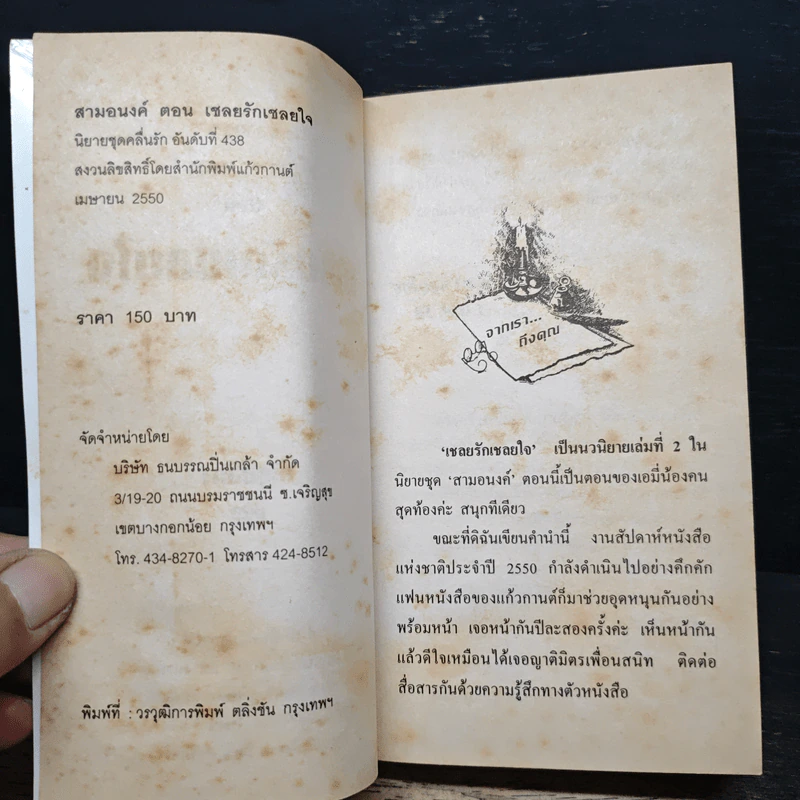 สามอนงค์ ตอน เชลยรักเชลยใจ
นิยายชุดคลื่นรัก อันดับที่ 438
สงวนลิขสิทธิ์โดยสำนักพิมพ์แก้วกานต์
เมษายน 2550
ราคา 150 บาท
จัดจำหน่ายโดย
บริษัท ธนบรรณปิ่นเกล้า จำกัด
3/19-20 ถนนบรมราชชนนี ซ.เจริญสุข
เขตบางกอกน้อย กรุงเทพฯ
โทร. 434-8270-1 โทรสาร 424-8512
พิมพ์ที่ : วรวุฒิการพิมพ์ ตลิ่งชัน กรุงเทพฯ
จากเรา...
ถึงคุณ
'เชลยรักเชลยใจ' เป็นนวนิยายเล่มที่ 2 ใน
นิยายชุด 'สามอนงค์' ตอนนี้เป็นตอนของเอมี่น้องคน
สุดท้องค่ะ สนุกทีเดียว
ขณะที่ดิฉันเขียนคำนำนี้ งานสัปดาห์หนังสือ
แห่งชาติประจำปี 2550 กำลังดำเนินไปอย่างคึกคัก
แฟนหนังสือของแก้วกานต์ก็มาช่วยอุดหนุนกันอย่าง
พร้อมหน้า เจอหน้ากันปีละสองครั้งค่ะ เห็นหน้ากัน
แล้วดีใจเหมือนได้เจอญาติมิตรเพื่อนสนิท ติดต่อ
สื่อสารกันด้วยความรู้สึกทางตัวหนังสือ